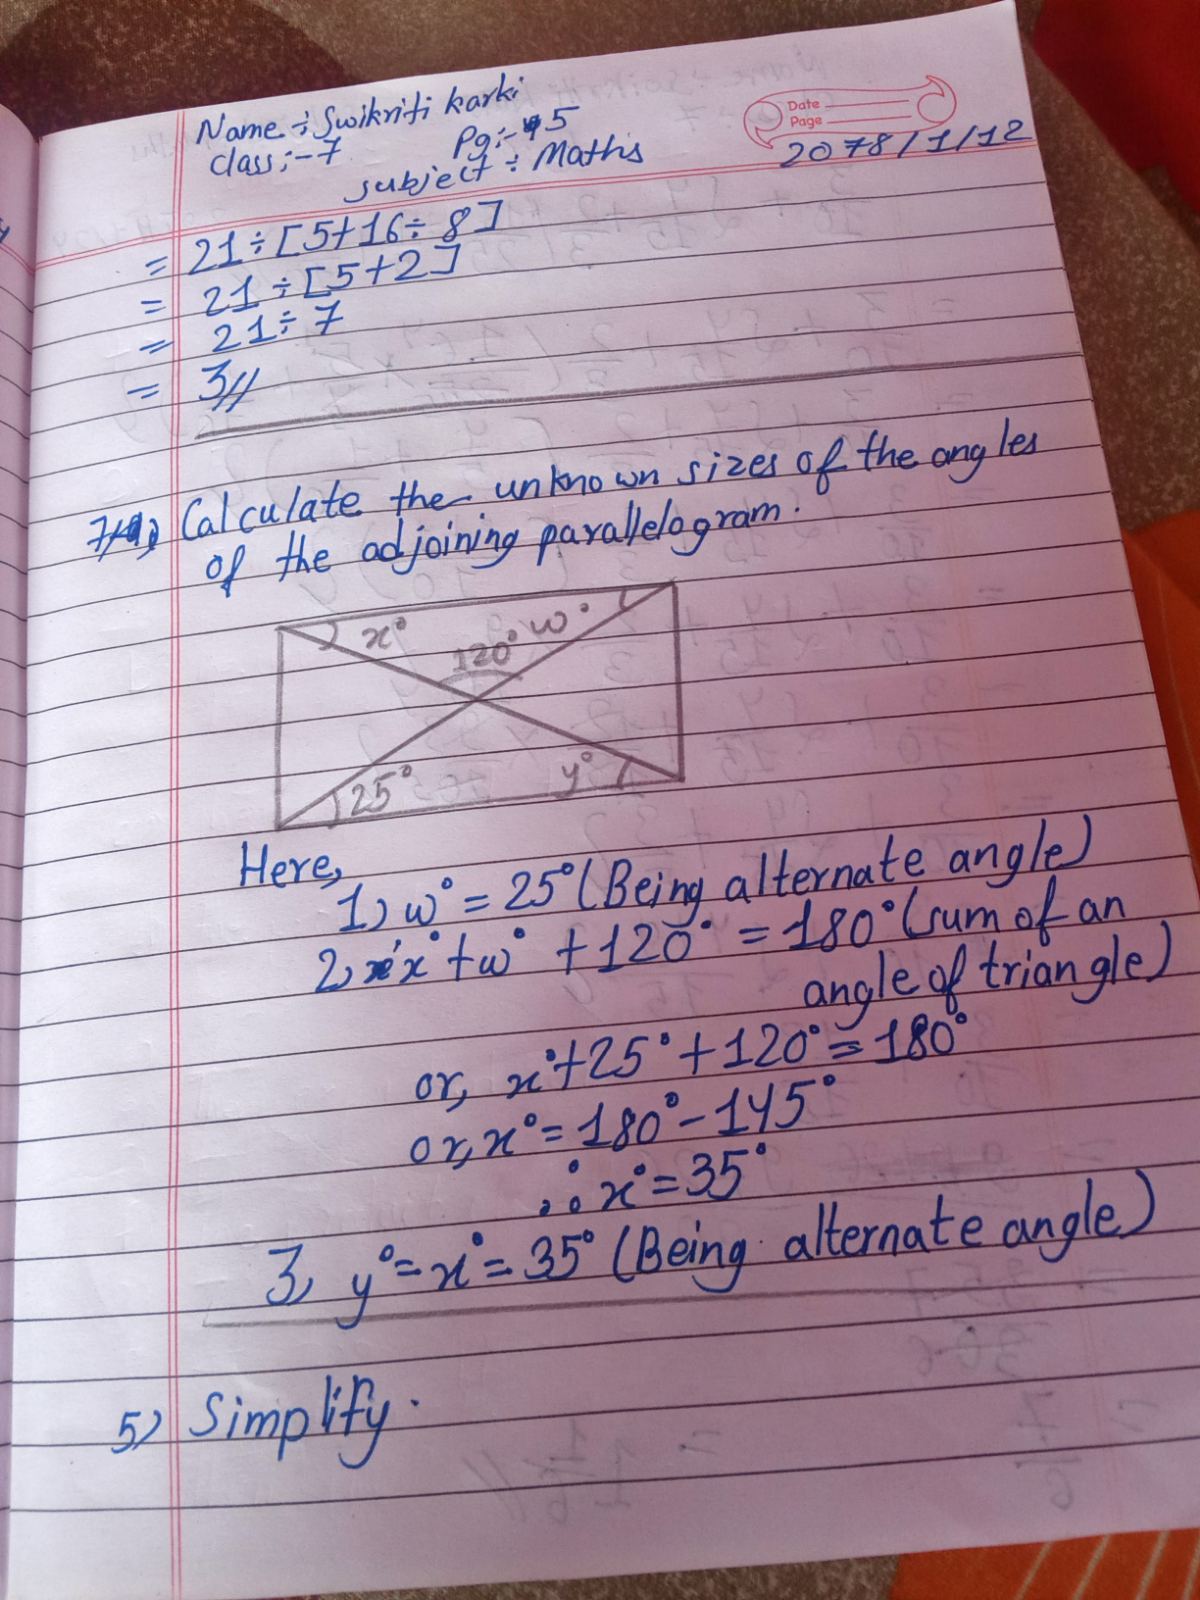 Name ÷ Swikriti karki
class :- 7
Pg :- 5
subject ÷ Maths
Date
Page
2078/1/12
= 21 ÷ [5+16÷ 8]
= 21 ÷ [5+2]
= 21 ÷ 7
= 3//
Calculate the unknown sizes of the angles
of the adjoining parallelogram.
x°
120°
w°
25°
y°
Here,
1) w° = 25° (Being alternate angle)
2) x° + w° + 120° = 180° (sum of an
angle of triangle)
or, x°+25°+120°=180°
or, x° = 180° - 145°
∴ x° = 35°
3) y° = x° = 35° (Being alternate angle)
5) Simplify.